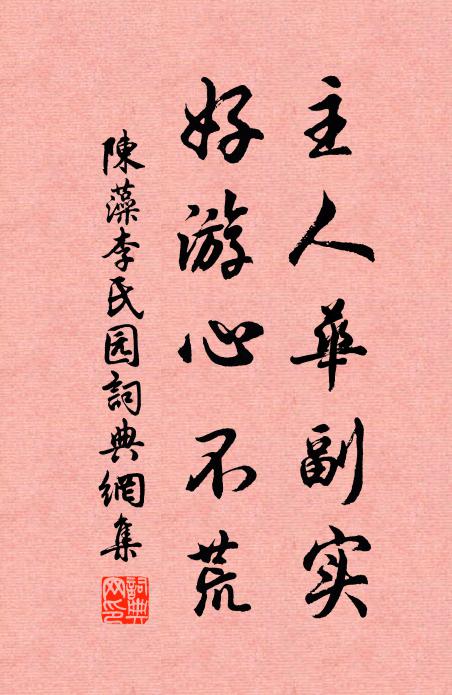 主人華副实
好游心不荒
陳藻李氏园詞典網集
詞典網印